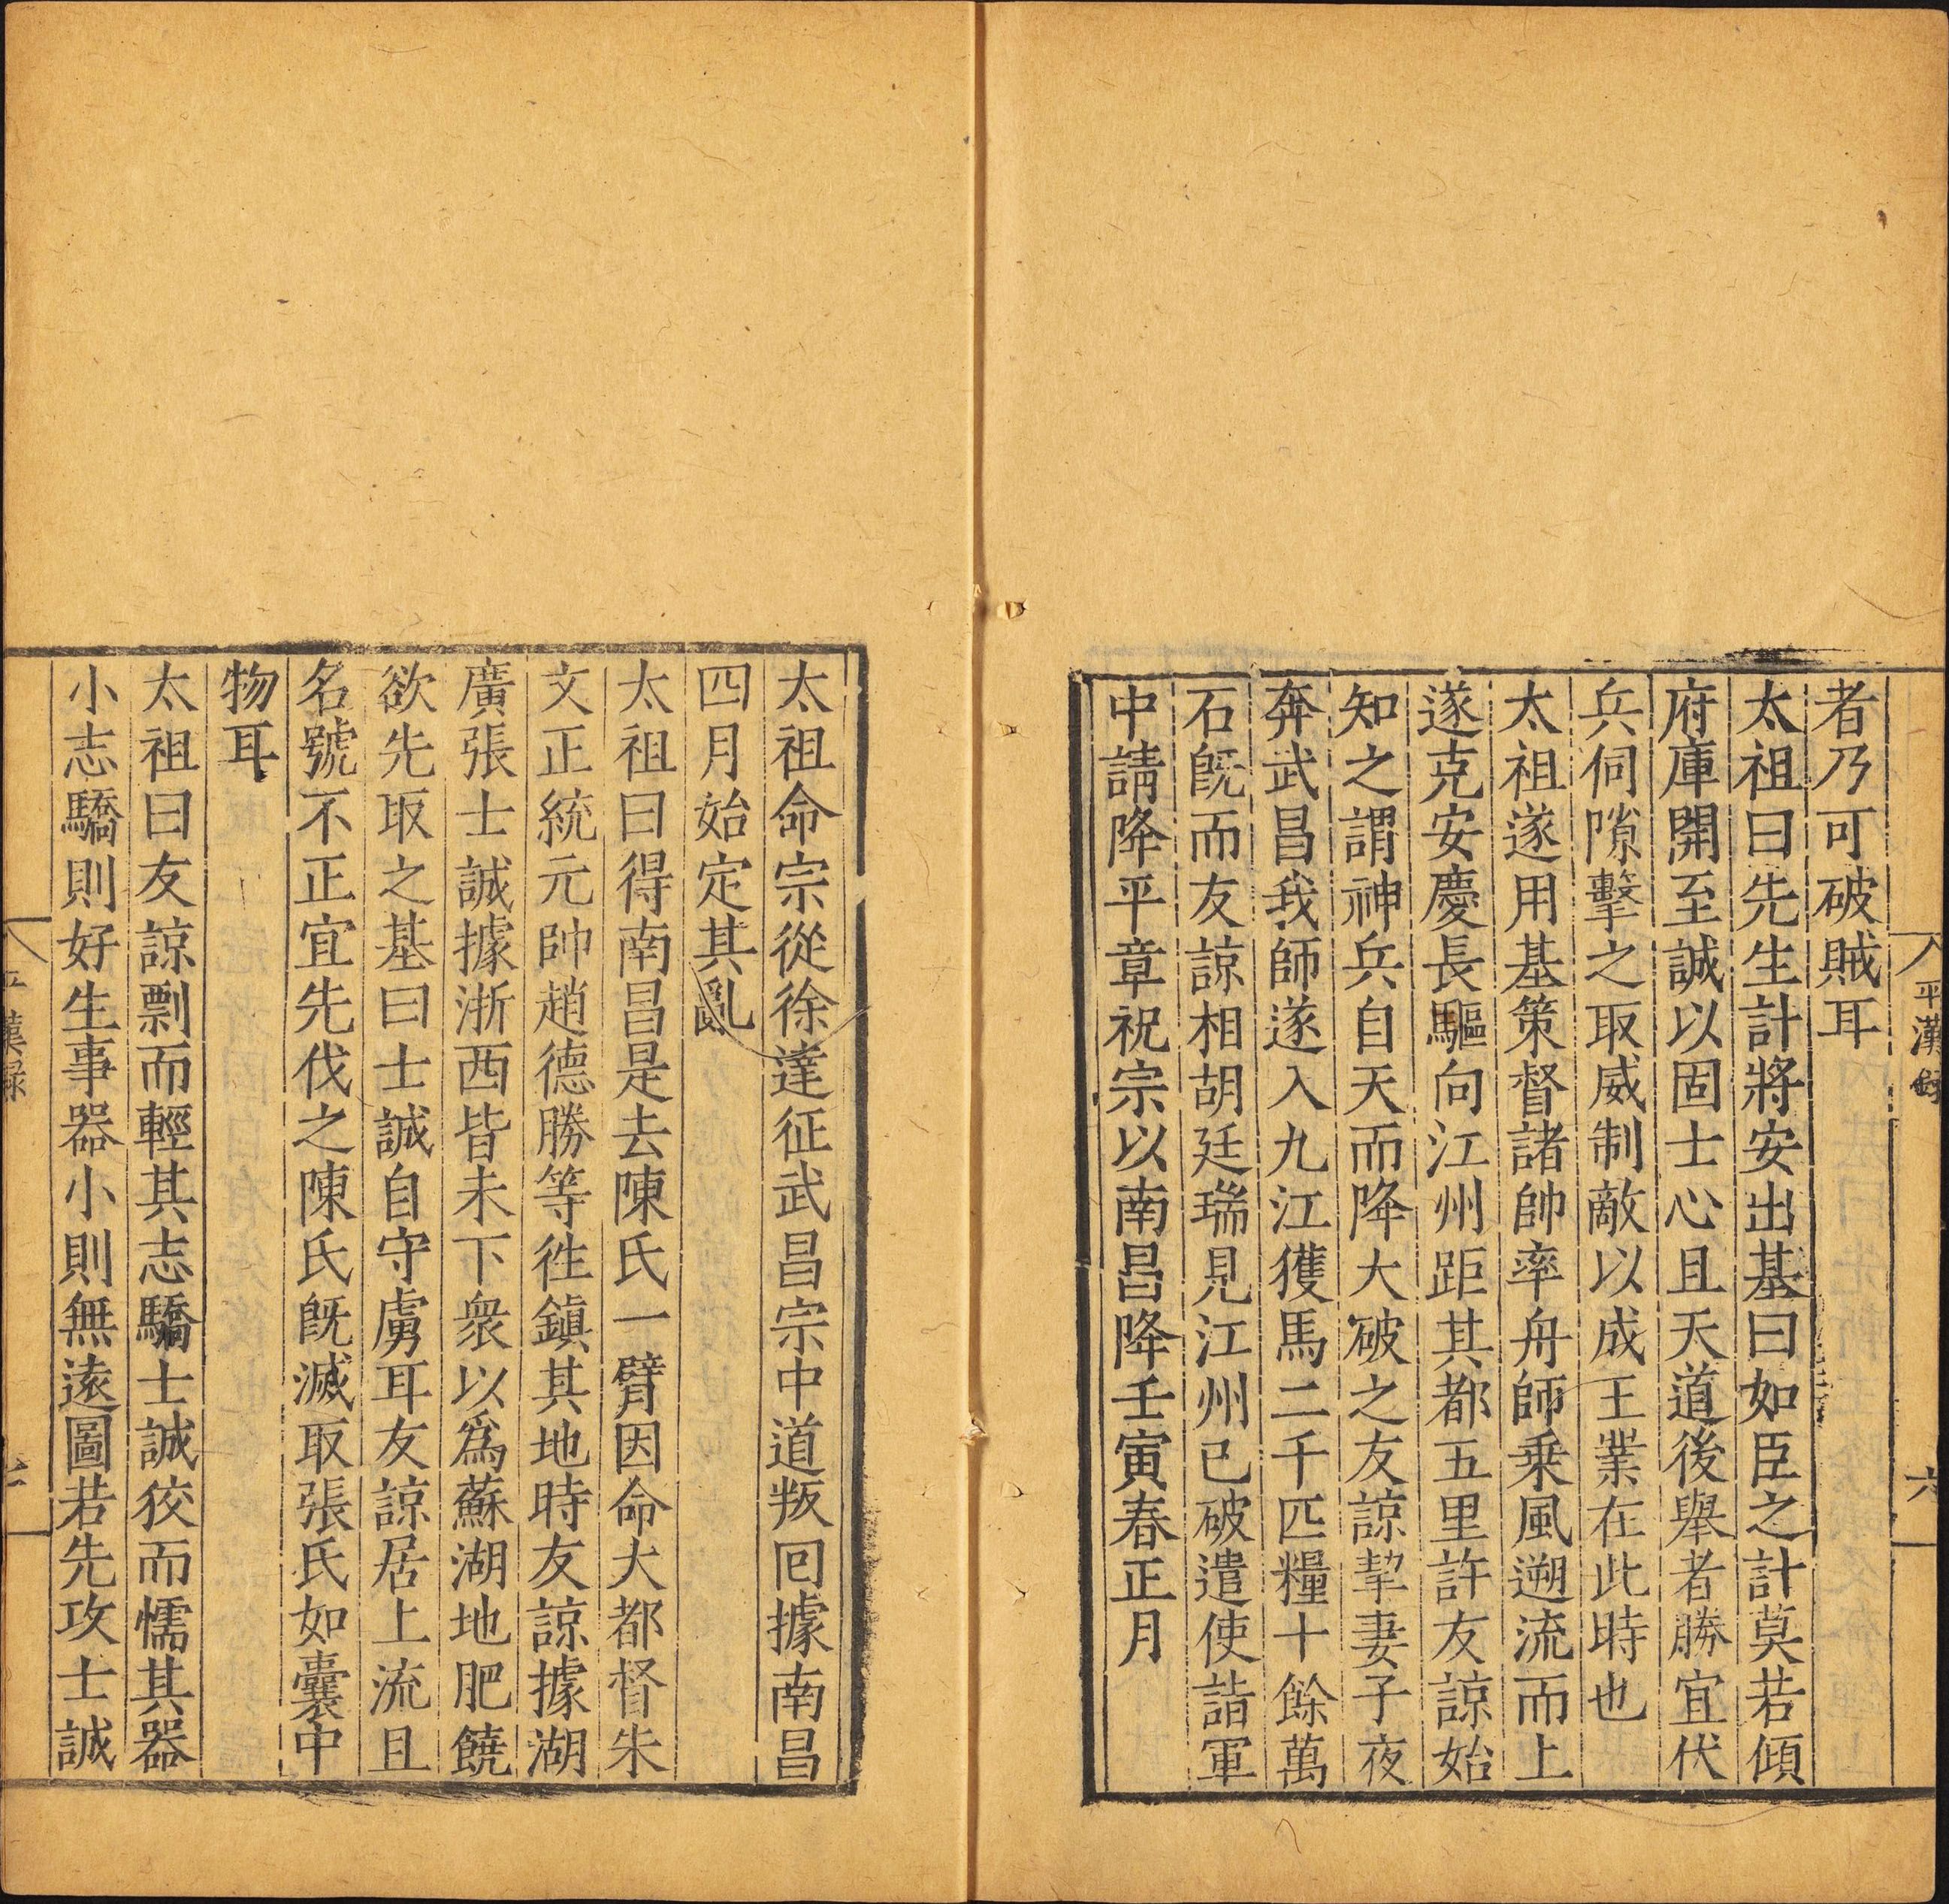 平漢錄
六
者乃可破賊耳
太祖曰先生計將安出基曰如臣之計莫若傾
府庫開至誠以固士心且天道後舉者勝宜伏
兵伺隙擊之取威制敵以成王業在此時也
太祖遂用基策督諸帥率舟師乗風遡流而上
遂克安慶長驅向江州距其都五里許友諒始
知之謂神兵自天而降大破之友諒挈妻子夜
奔武昌我師遂入九江獲馬二千匹糧十餘萬
石旣而友諒相胡廷瑞見江州已破遣使詣軍
中請降平章祝宗以南昌降壬寅春正月
太祖命宗從徐達征武昌宗中道叛回據南昌
四月始定其亂
太祖曰得南昌是去陳氏一臂因命大都督朱
文正統元帥趙德勝等徃鎮其地時友諒據湖
廣張士誠據浙西皆未下衆以爲蘇湖地肥饒
欲先取之基曰士誠自守虜耳友諒居上流且
名號不正宜先伐之陳氏旣滅取張氏如囊中
物耳
太祖曰友諒剽而輕其志驕士誠狡而懦其器
小志驕則好生事器小則無遠圖若先攻士誠
平漢錄
七